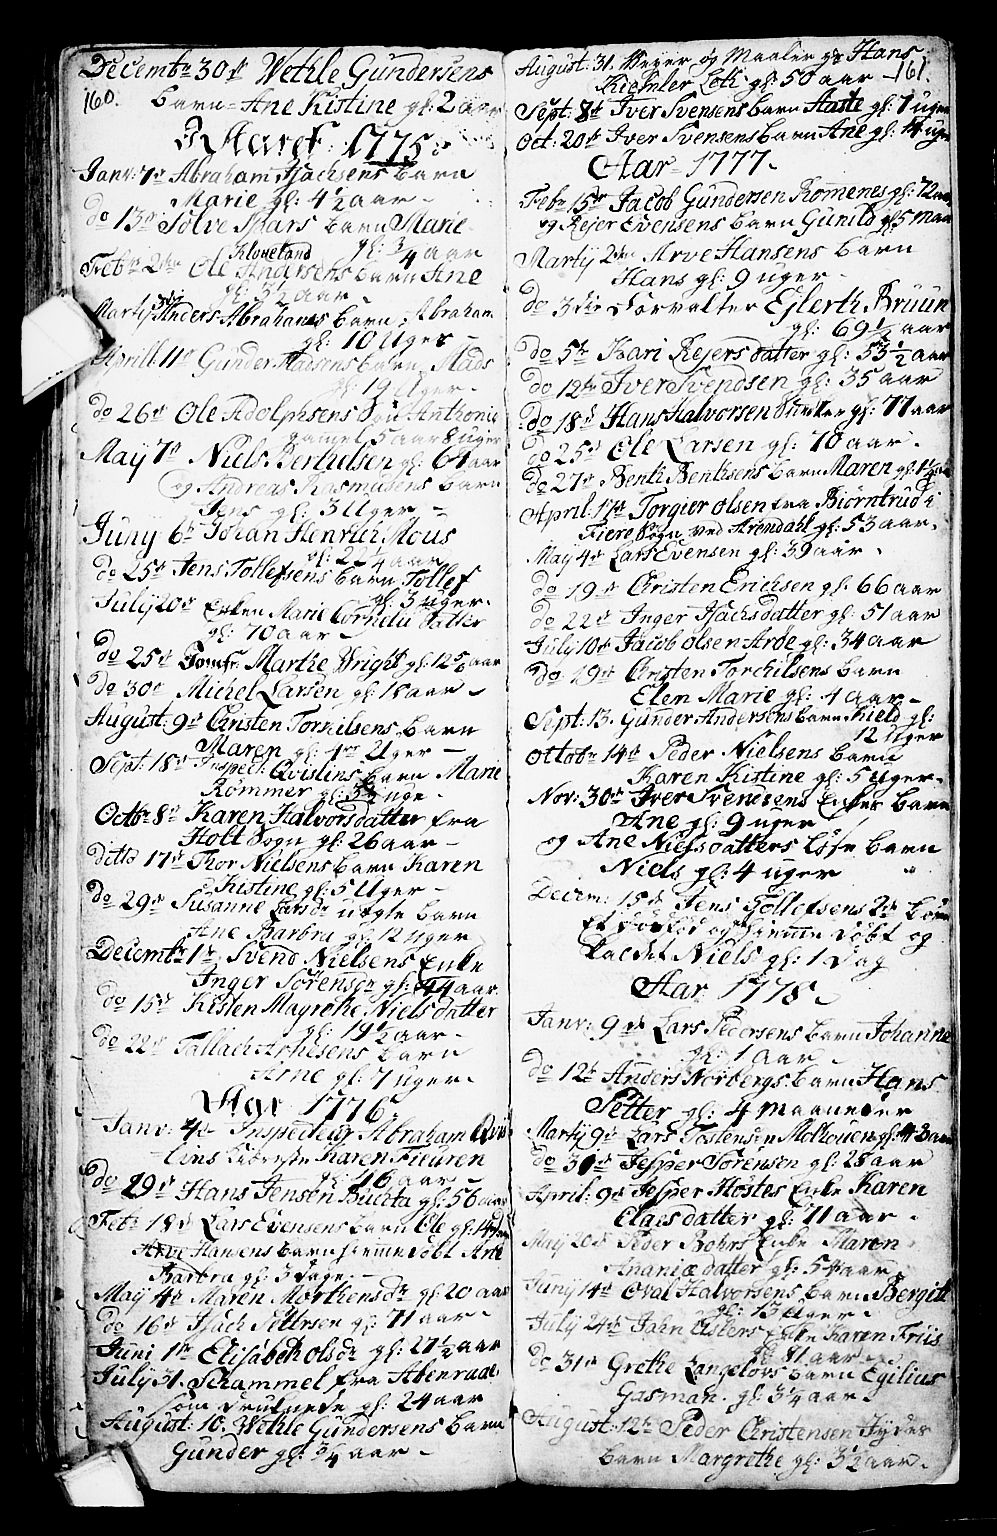 Decembr 30d Wetle Gundersens
160. barn = Ane Kistine gl: 2 aar
Aaret 1775
Janv: 7d Abraham Isachsens barn
Marie gl: 4½ aar -
do 13d Sølve Spars barn Marie
gl: ¾ aar
Kloveland
Febr 2de Ole Andersens barn Ane
gl: 3½ aar -
Martij Anders Abrahams barn Abraham
gl: 10 Uger -
Aprill 11d Gunder Madsens barn Mads
gl: 19 Uger -
do 26d Ole Adolphsens Anthonia
gamel 5 aar 8 uger
May 7d Niels Bertelsen gl: 64 aar
og Andreas Rasmusens barn
Jens gl: 3 Uger -
Juny 6d Johan Henrich Mous
gl: 22¼ aar
do 25d Jens Tollefsens barn Tollef
gl: 3 uger.
July 20d Enken Marie Cornelii datter
gl: 70 aar -
do 25d Jomfr: Marthe Wright gl: 12 aar
do 30d Michel Larsen gl: 18 aar -
August: 9d Christen Torkilsens barn
Maren gl: Uger -
Sept: 18d Inspect: Qvislins barn Marie
Rommer gl: uge -
Octbr 8d Karen Halvorsdatter fra
Holt Sogn gl: 26 aar -
ditto 17d Thor Nielsens barn Karen
Kistine gl: 5 Uger -
do 29d Susanne Larsdr uægte barn
Ane Barbra gl: 12 Uger
Decembr 1d Svend Nielsens Enke
Inger Sørensdr gl: 44 aar
do 15d Kisten Magrethe Nielsdatter
gl: 19½ aar -
do 22d Tallach Arnesens barn
Arne gl: 7 uger -
Aar 1776
Janv: 4d Inspecteur Abraham Qvis
lins Karen Fieuren
gl: 16 aar -
do 29d Hans Jensen Buesta gl: 56 aar
Febr 18d Lars Evensens barn Ole gl:
Arve Hansens barn hiemmedøbt Arne
Barbra gl: 3 dage -
May 4d Maren Morthensdr gl: 20 aar
do 16d Isach Pettersen gl: 71 aar -
Juni 1d Elisabeth Olsdr gl: 27½ aar
July 31. Schammel fra Abenraae
som druknede gl: 24 aar
August: 10. Wetle Gundersens barn
Gunder gl: ¾ aar -
August: 31. Veyer og Maaler Hans
Richter Lotz gl: 50 aar - 161.
Sept: 8d Iver Svensens barn Aaste gl: 7 uger
Oct: 20d Iver Svensens barn Ane gl: 14 uger
Aar - 1777
Febr 15d Jacob Gundersen Romenes gl: 72 aar
og Rejer Evensens barn Gunild gl: 5 maan
Martij 2den Arve Hansens barn
Hans gl: 9 uger -
do 3die Forvalter Ejlerth Bruun
gl: 69½ aar
do 5t Kari Rejersdatter gl: 53½ aar
do 12te Iver Svendsen gl: 35 aar
do 18d Hans Halvorsen gl: 77 aar
do 25d Ole Larsen gl: 70 aar -
do 27d Bent Bentsens barn Maren gl:
April: 17d Torgier Olsen fra Biørntrud i
Fiere Sogn ved Arendahl gl: 53 aar.
May 4d Lars Evensen gl: 39 aar -
do 19d Christen Erichsen gl: 66 aar
do 22d Inger Isachsdatter gl: 51 aar
July 10d Jacob Olsen Aroe gl: 34 aar
do 29d Christen Torchilsens barn
Elen Marie gl: 1 Aar -
Sept: 13. Gunder Andersens barn Kield gl:
12 Uger
Octobr 14d Peder Nielsens barn
Karen Kistine gl: 5 uger -
Nov: 30d Iver Svendsens Enkes barn
Ane gl: 9 uger
og Ane Nielsdatters Løse barn
Niels gl: 4 uger
Decem: 15d Jens Tollefsens 2de børn
Et dødfød og hiemmedøbt og
kaldet Niels gl: 1 Dag
Aar 1778
Janv: 9d Lars Pedersens barn Johanne
gl: 1 Aar -
do 12t Anders Norbergs barn Hans
Petter gl: 4 Maaneder
Martij 9d Lars Tostensen Molhouen gl: 43 aar
do 30d Jesper Sørensen gl: 28 aar
April: 9d Jesper Høstes Enke Karen
Claesdatter gl: 71 aar -
May 20d Peder Bohrs Enke Maren
Ananiædatter gl: 54 aar
Juny 14d Oval Halvorsens barn Bergitt
gl: 13 Uger -
July 24d John Olsens Enke Karen Friis
gl: 81 aar -
do 31d Grethe Langelows barn Egilius
Gasman gl: 3¼ aar -
August: 12t Peder Christensen Jydes
barn Margrethe gl: 3½ aar -